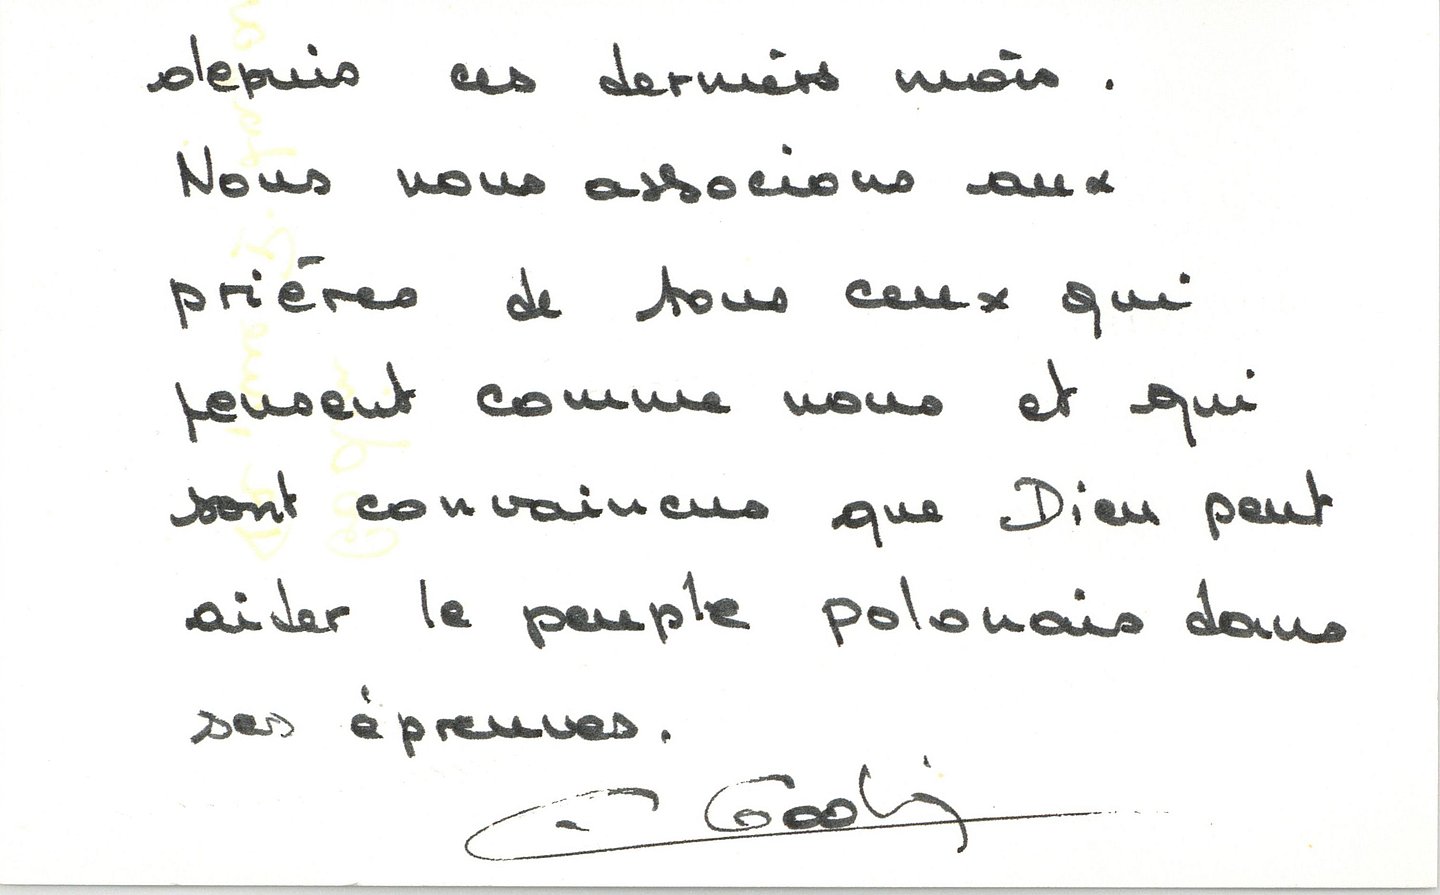 depuis ces derniers mois.
Nous nous associons aux
prières de tous ceux qui
pensent comme nous et qui
sont convaincus que Dieu peut
aider le peuple polonais dans
ses épreuves.